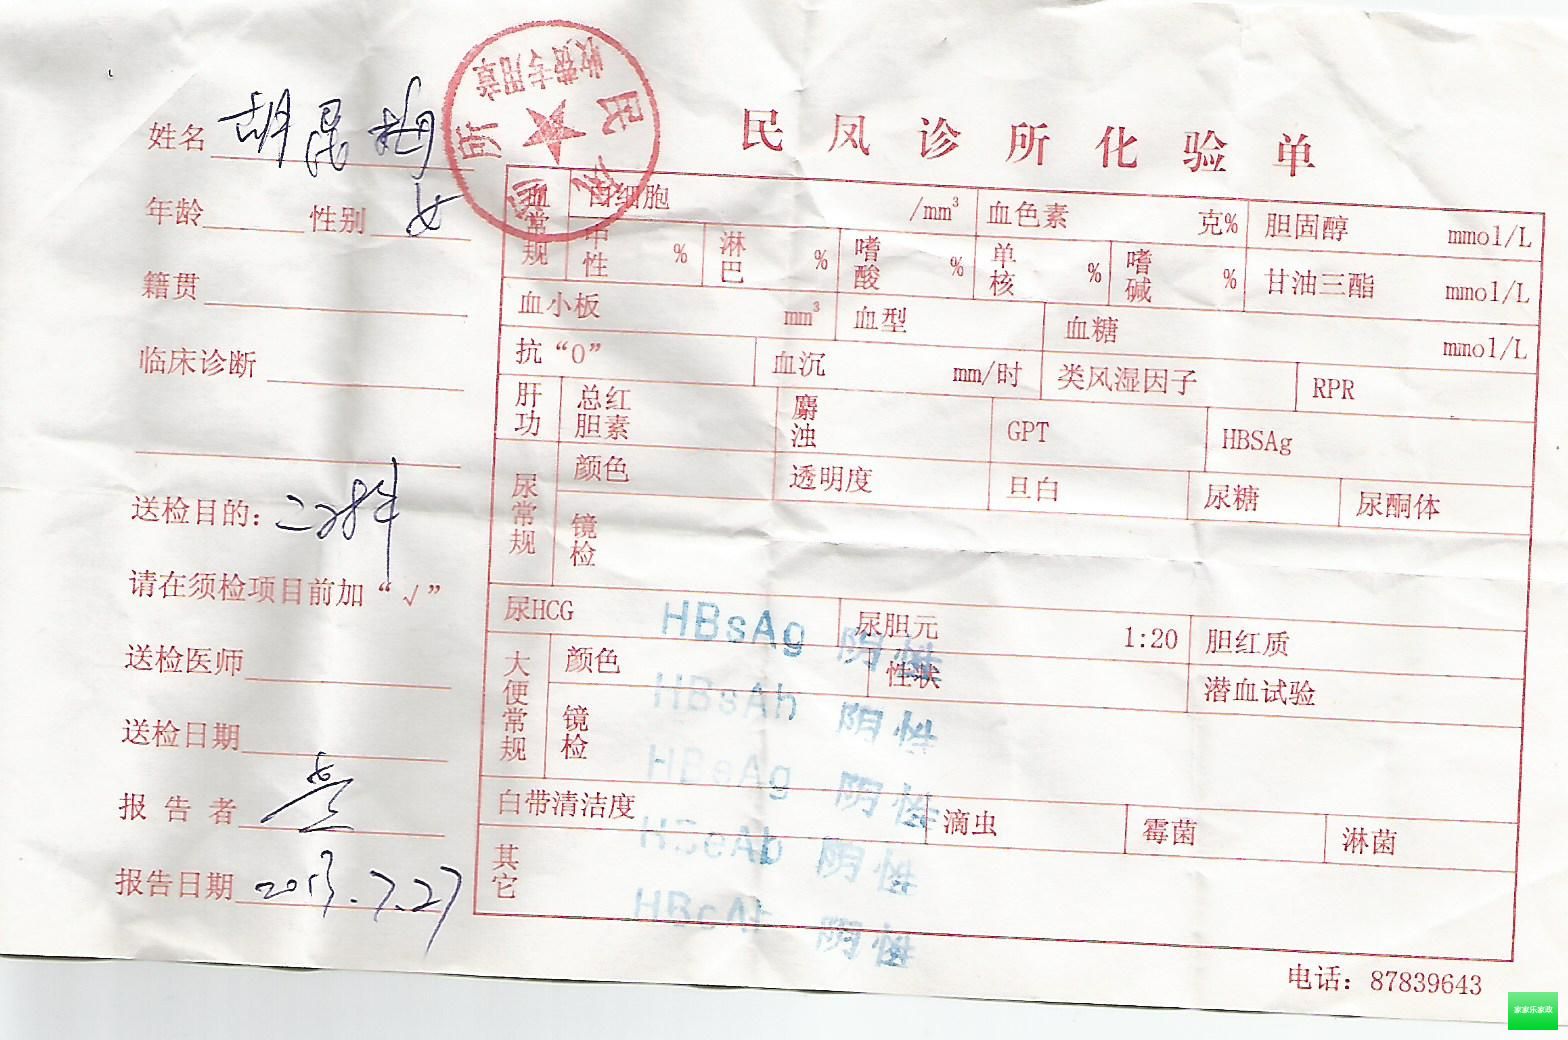 民凤诊所化验单
收费专用章
姓名 胡昆梅
年龄 性别 女
籍贯
临床诊断
送检目的：二对半
请在须检项目前加“√”
送检医师
送检日期
报告者
报告日期 2013.7.27
血常规 白细胞 /mm³ 血色素 克% 胆固醇 mmol/L
中性 % 淋巴 % 嗜酸 % 单核 % 嗜碱 % 甘油三酯 mmol/L
血小板 mm³ 血型 血糖 mmol/L
抗“0” 血沉 mm/时 类风湿因子 RPR
肝功 总红胆素 麝浊 GPT HBSAg
尿常规 颜色 透明度 旦白 尿糖 尿酮体
镜检
尿HCG 尿胆元 1:20 胆红质
大便常规 颜色 性状 潜血试验
镜检
白带清洁度 滴虫 霉菌 淋菌
其它
HBsAg 阴性
HBsAb 阴性
HBeAg 阴性
HBeAb 阴性
HBcAb 阴性
电话：87839643
家家乐家政